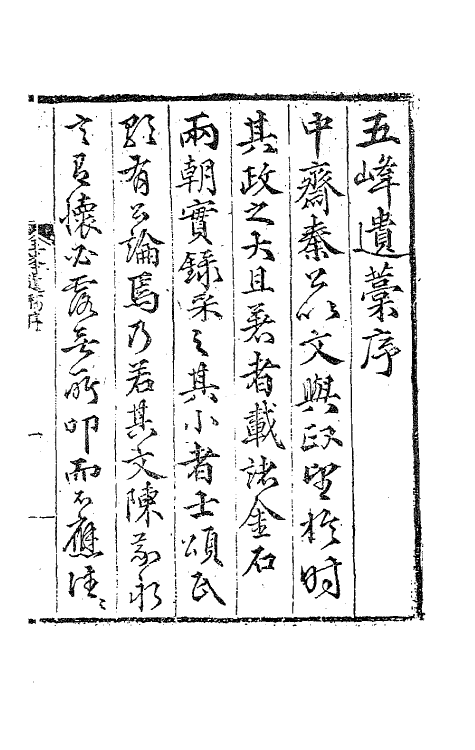 五峰遺藁序
中齋秦公以文與政望於時
其政之大且著者載諸金石
兩朝實錄采之其小者士頌民
有公論焉乃若其文陳永
言有懷必露無所叩而不應往〻
五峯遺稿序 一